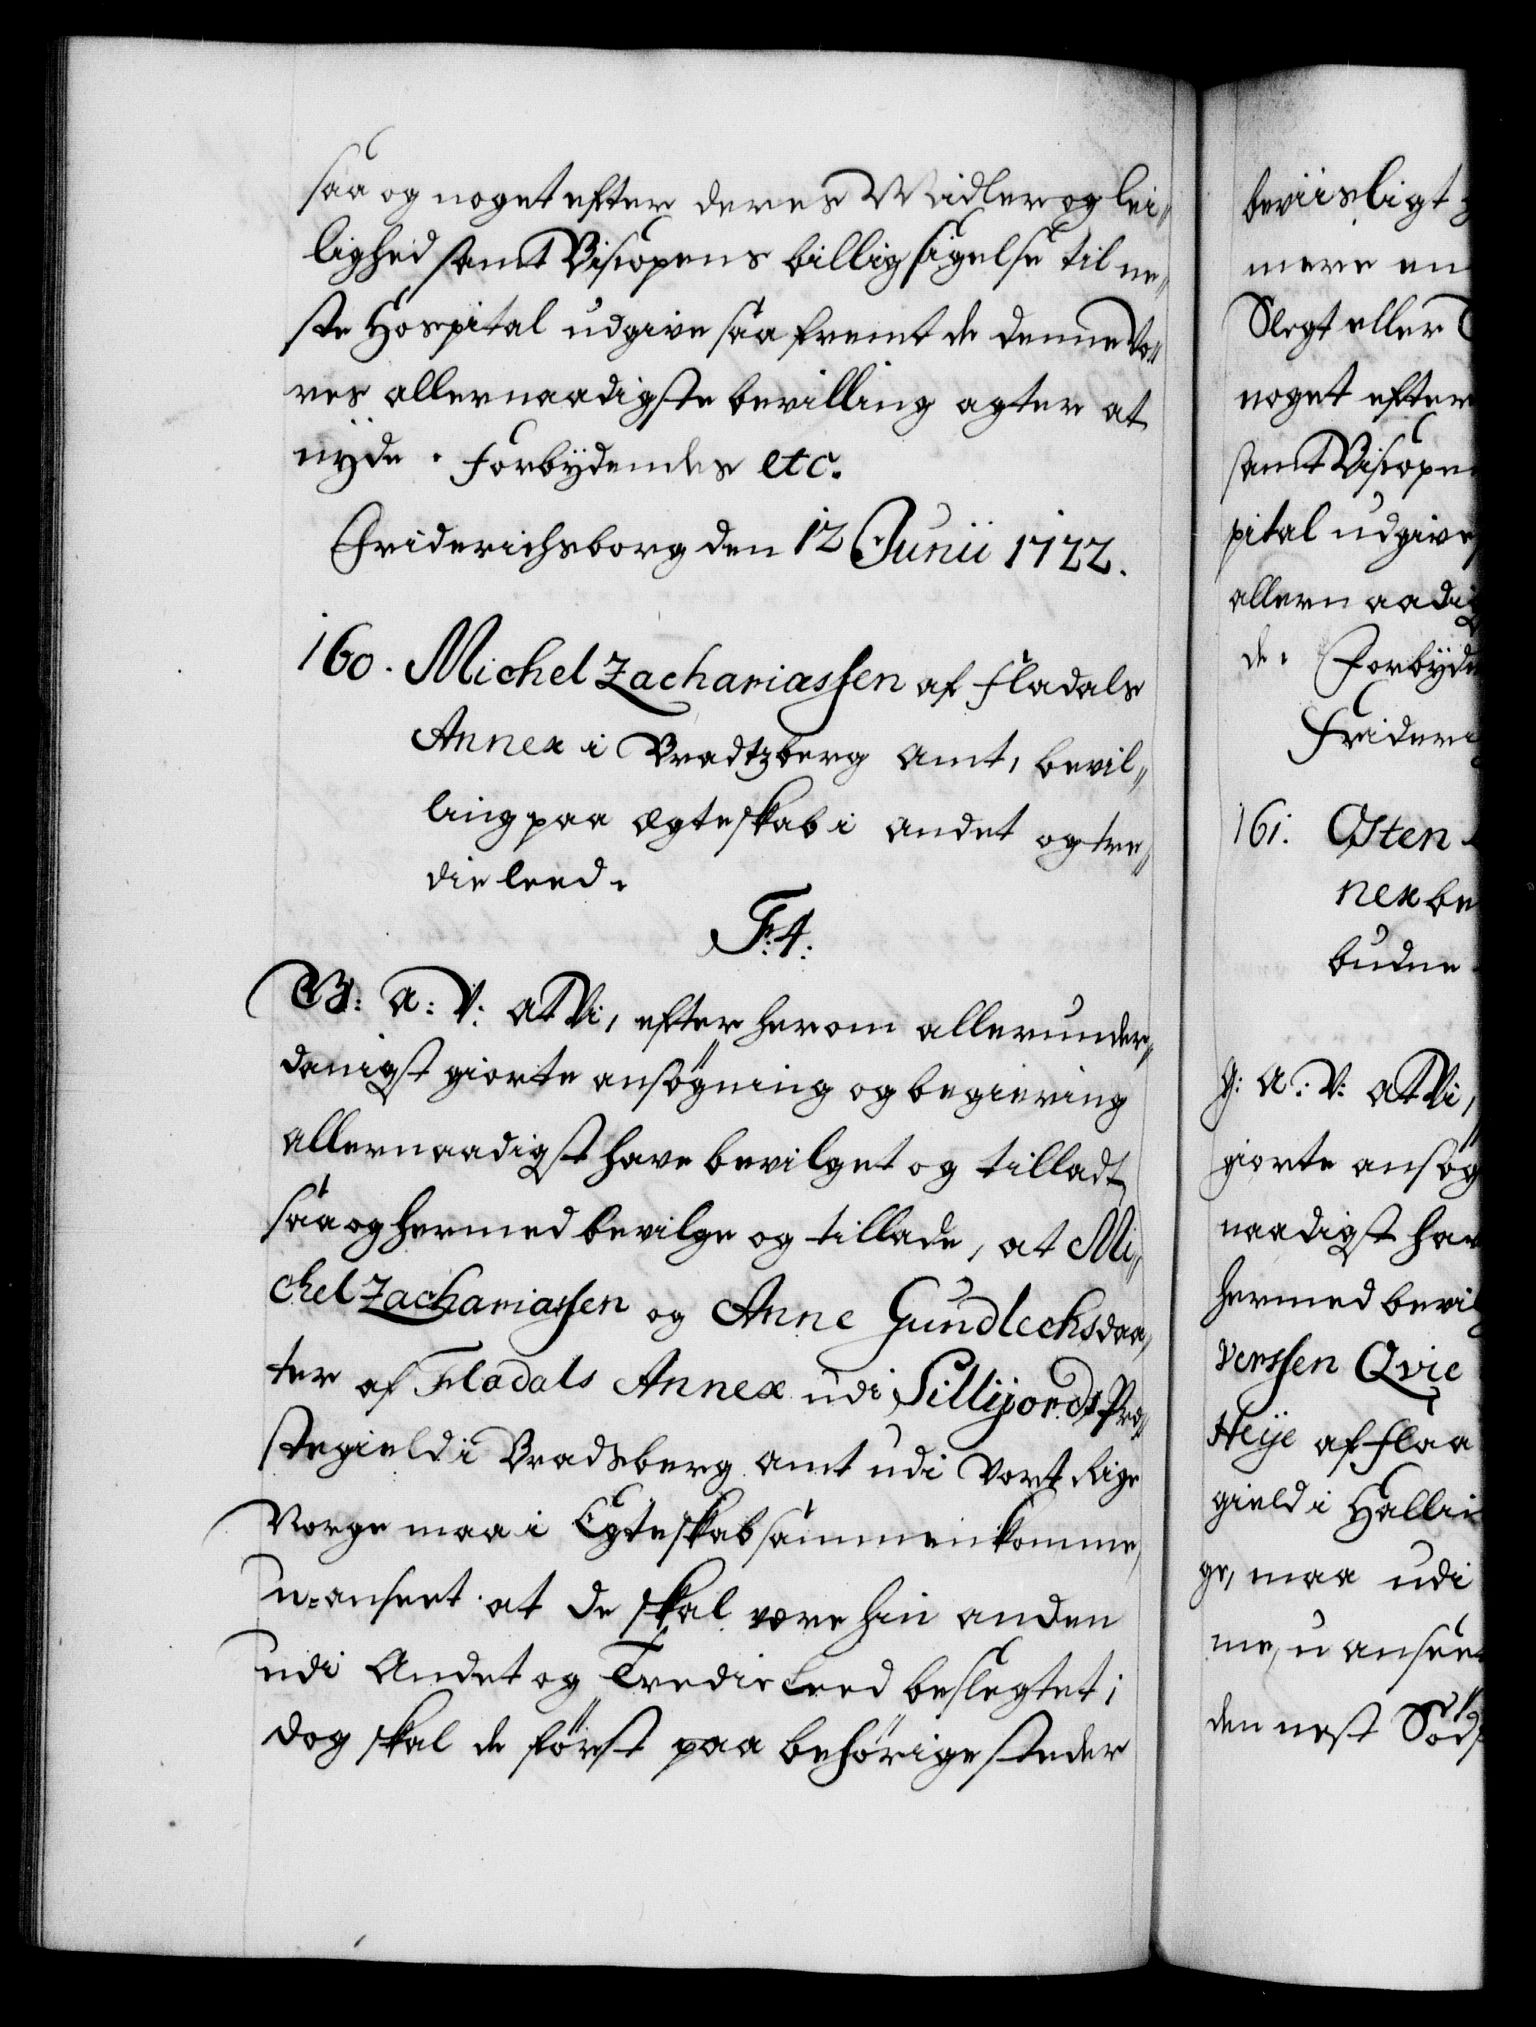 saa og noget efter deres Midler og lei„
lighed samt Biscopens billig sigelse til ne„
ste Hospital udgive saa fremt de denne Vo„
res allernaadigste bevilling agter at
nÿde. Forbÿdendes etc.
Friderichsborg den 12 Junii 1722.
160. Michel Zachariassen af Fladals
Annex i Bradtzberg Amt, bevil„
ling paa Ægteskab i andet og tre„
die leed.
F: 4:
G: A: V: At Vi, efter herom allerunder„
danigst giorte ansøgning og begiering
allernaadigst have bevilget og tilladt,
saa og hermed bevilge og tillade, at Mi„
chel Zachariassen og Anne Gundlechsdaa„
ter af Fladals Annex udi Sillijords Præ„
stegield i Bradsberg amt udi Vort Rige
Norge maa i Egteskab sammenkomme,
u-anseet at de skal være hin anden
udi Andet og Tredie Leed beslegtet;
dog skal de først paa behørige steder
beviisligt
mere en
Slegt eller
noget efter
samt Biscopen
pital udgive
allernaadig
de. Forbÿde
Frideri
161. Osten
nex be
budne
G: A: V: At Vi,
giorte ansøg
naadigst hav
hermed bevil
verssen Qvie
Heije af Flaa
gield i Hallin
ge, maa udi
me, u anseet
den nest Sød